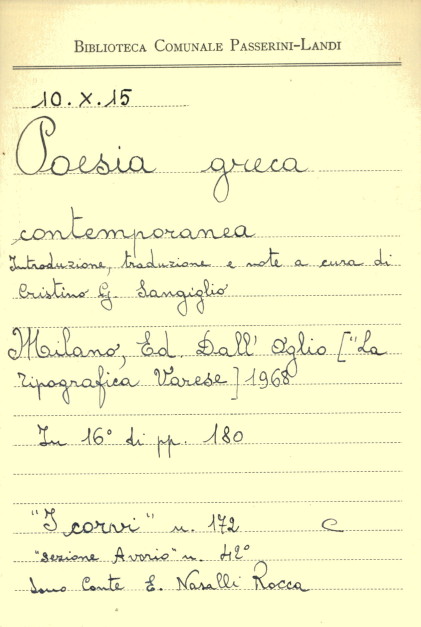 BIBLIOTECA COMUNALE PASSERINI-LANDI
10.X.15
Poesia greca
contemporanea
Introduzione, traduzione e note a cura di
Cristino G. Sangiglio
Milano, Ed. Dall' Oglio ["La
Tipografica Varese] 1968
In 16° di pp. 180
"I corvi" n. 172 C
"Sezione Avorio" n. 42°
Dono Conte E. Nasalli Rocca